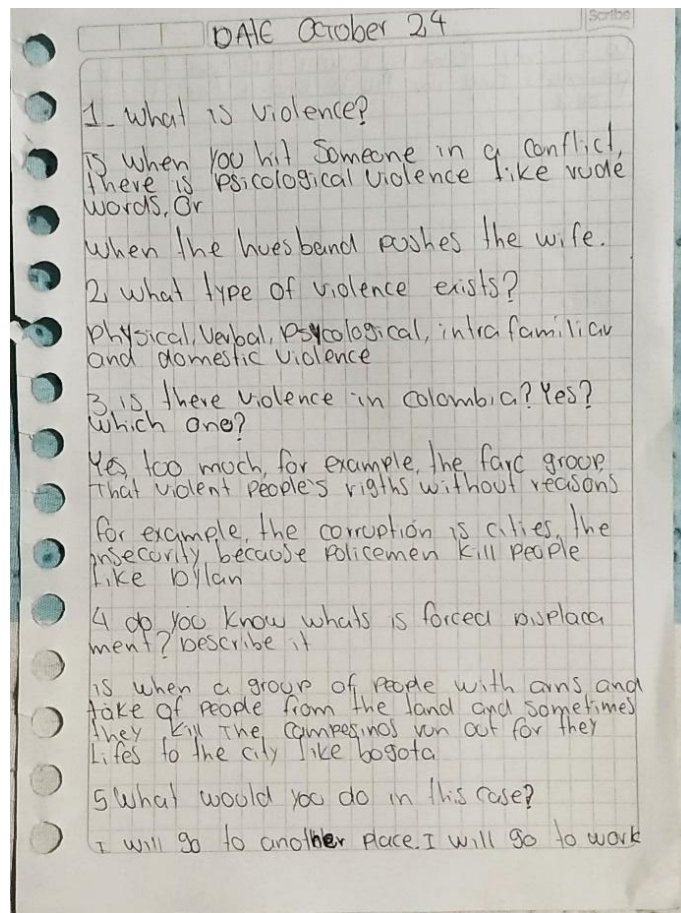 Scribe
DATE October 24
1_ What is violence?
is when you hit Someone in a conflict,
there is psicological violence like rude
words, Or
when the huesband pushes the wife.
2, what type of violence exists?
Physical, Verbal, Psycological, intrafamiliar
and domestic violence
3 is there violence in colombia? Yes?
which one?
Yes, too much, for example, the farc group
That violent people's rigths without reasons
for example, the corruption is cities, the
insecurity because policemen kill people
Like Dylan
4 do you know whats is forced Displaca
ment? Describe it
is when a group of people with arms and
take of people from the land and sometimes
they kill The campesinos run out for they
Lifes to the city like bogota
5 What would you do in this case?
I will go to another place. I will go to work